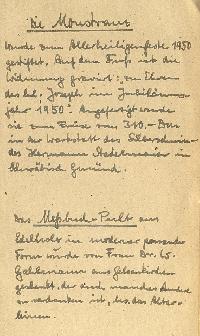 Die Monstranz
wurde zum Allerheiligenfeste 1950
gestiftet. Auf dem Fuß ist die
Widmung graviert: "zu Ehren
des hl. Joseph im Jubiläums-
jahr 1950". Angefertigt wurde
sie zum Preise von 310.- DM
in der Werkstatt des Silberschmie-
des Hermann Stadelmaier in
Schwäbisch Gmünd.
Das Meßbuch-Pult aus
Edelholz in moderner passender
Form wurde von Frau Dr. W.
aus Gelsenkirchen
geschenkt, der auch manches Andere
zu verdanken ist, bes. das Altar-
linnen.